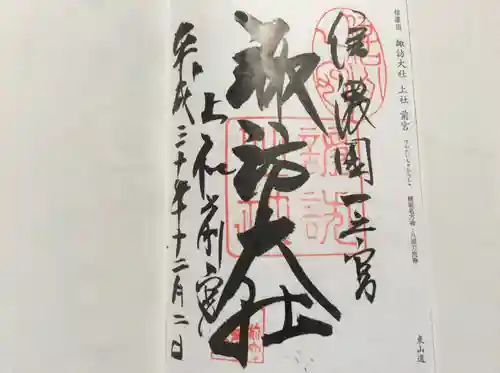 信濃国 諏訪大社 上社 前宮
東山道
信濃國一之宮
諏訪大社
上社前宮
平成三十年十二月二日